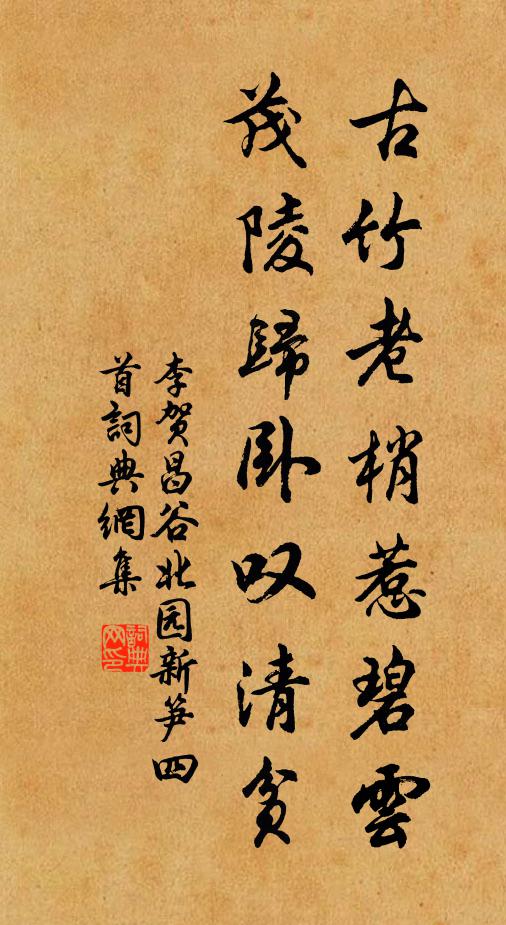 古竹老梢惹碧雲
茂陵歸卧叹清貧
李贺昌谷北园新笋四
首詞典網集
詞典网印